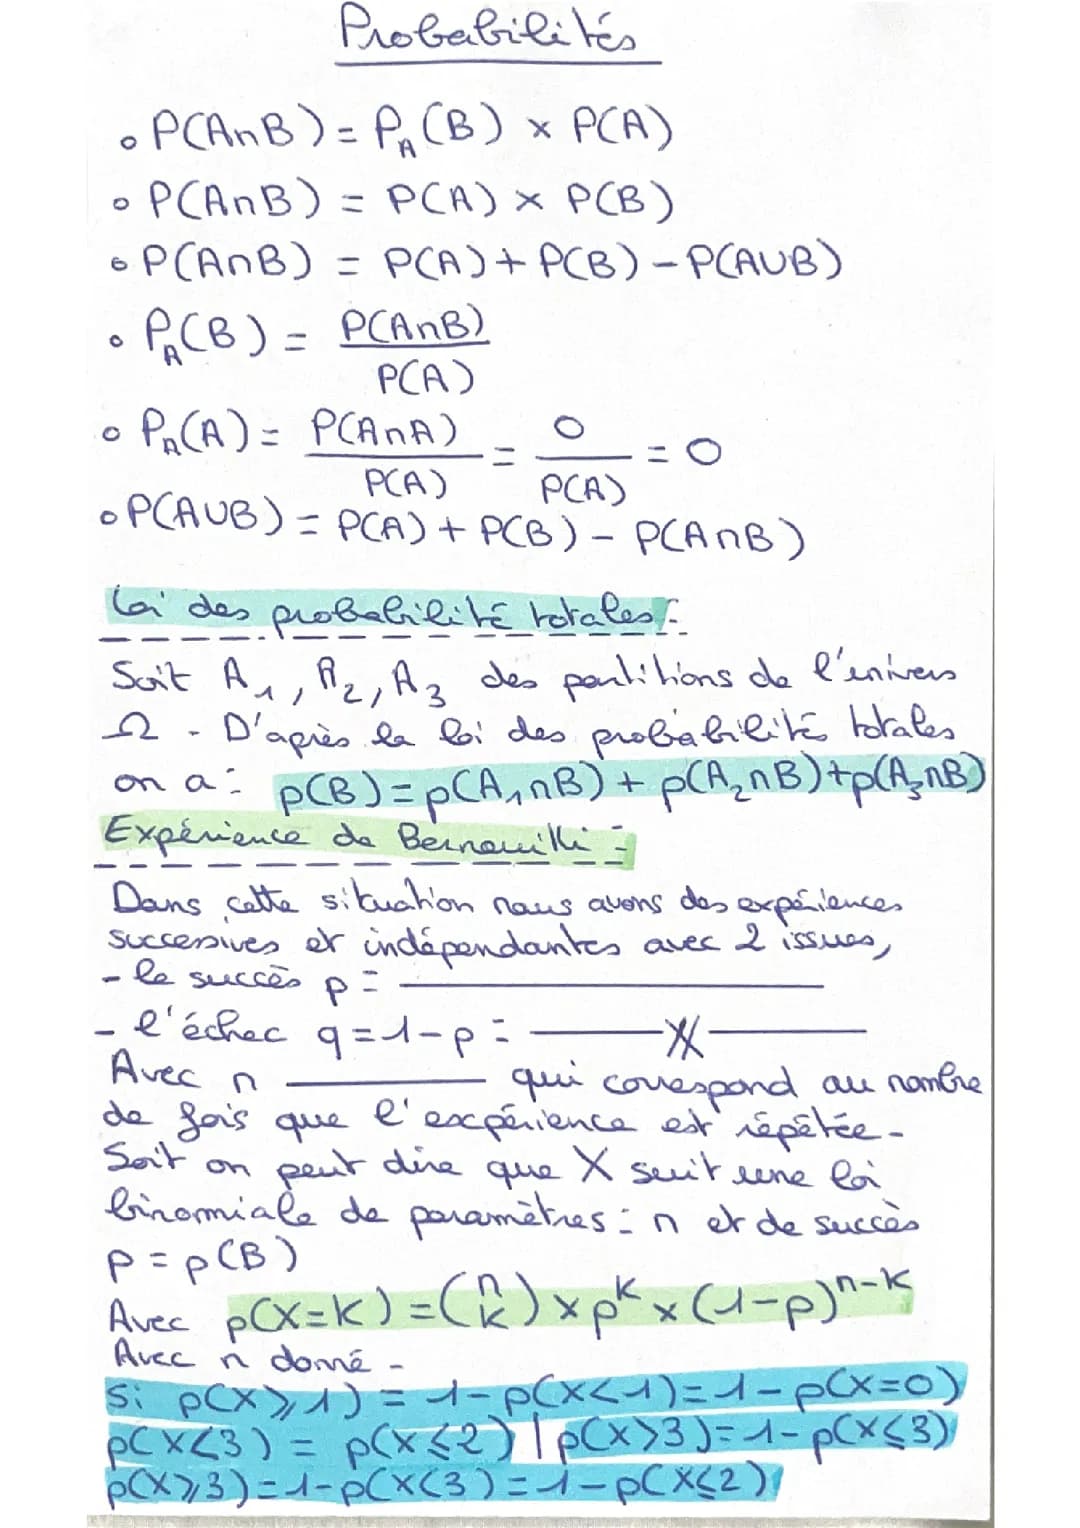 Probabilités
• P(A∩B) = P_A(B) × P(A)
• P(A∩B) = P(A) × P(B)
• P(A∩B) = P(A) + P(B) - P(A∪B)
• P_A(B) = P(A∩B) / P(A)
• P_A(A) = P(A∩A) / P(A) = 0 / P(A) = 0
• P(A∪B) = P(A) + P(B) - P(A∩B)
Loi des probabilité totales :
Soit A₁, A₂, A₃ des partitions de l'univers
Ω. D'après la loi des probabilités totales
on a : p(B) = p(A₁∩B) + p(A₂∩B) + p(A₃∩B)
Expérience de Bernouilli :
Dans cette situation nous avons des expériences
successives et indépendantes avec 2 issues,
- le succès p = ————
- l'échec q = 1-p = ——X——
Avec n ———— qui correspond au nombre
de fois que l'expérience est répétée.
Soit on peut dire que X suit une loi
binomiale de paramètres : n et de succès
p = p(B)
Avec p(X=K) = (n K) × p^K × (1-p)^n-K
Avec n donné.
Si p(X⩾1) = 1-p(X<1) = 1-p(X=0)
p(X<3) = p(X⩽2) | p(X>3) = 1-p(X⩽3)
p(X⩾3) = 1-p(X<3) = 1-p(X⩽2)